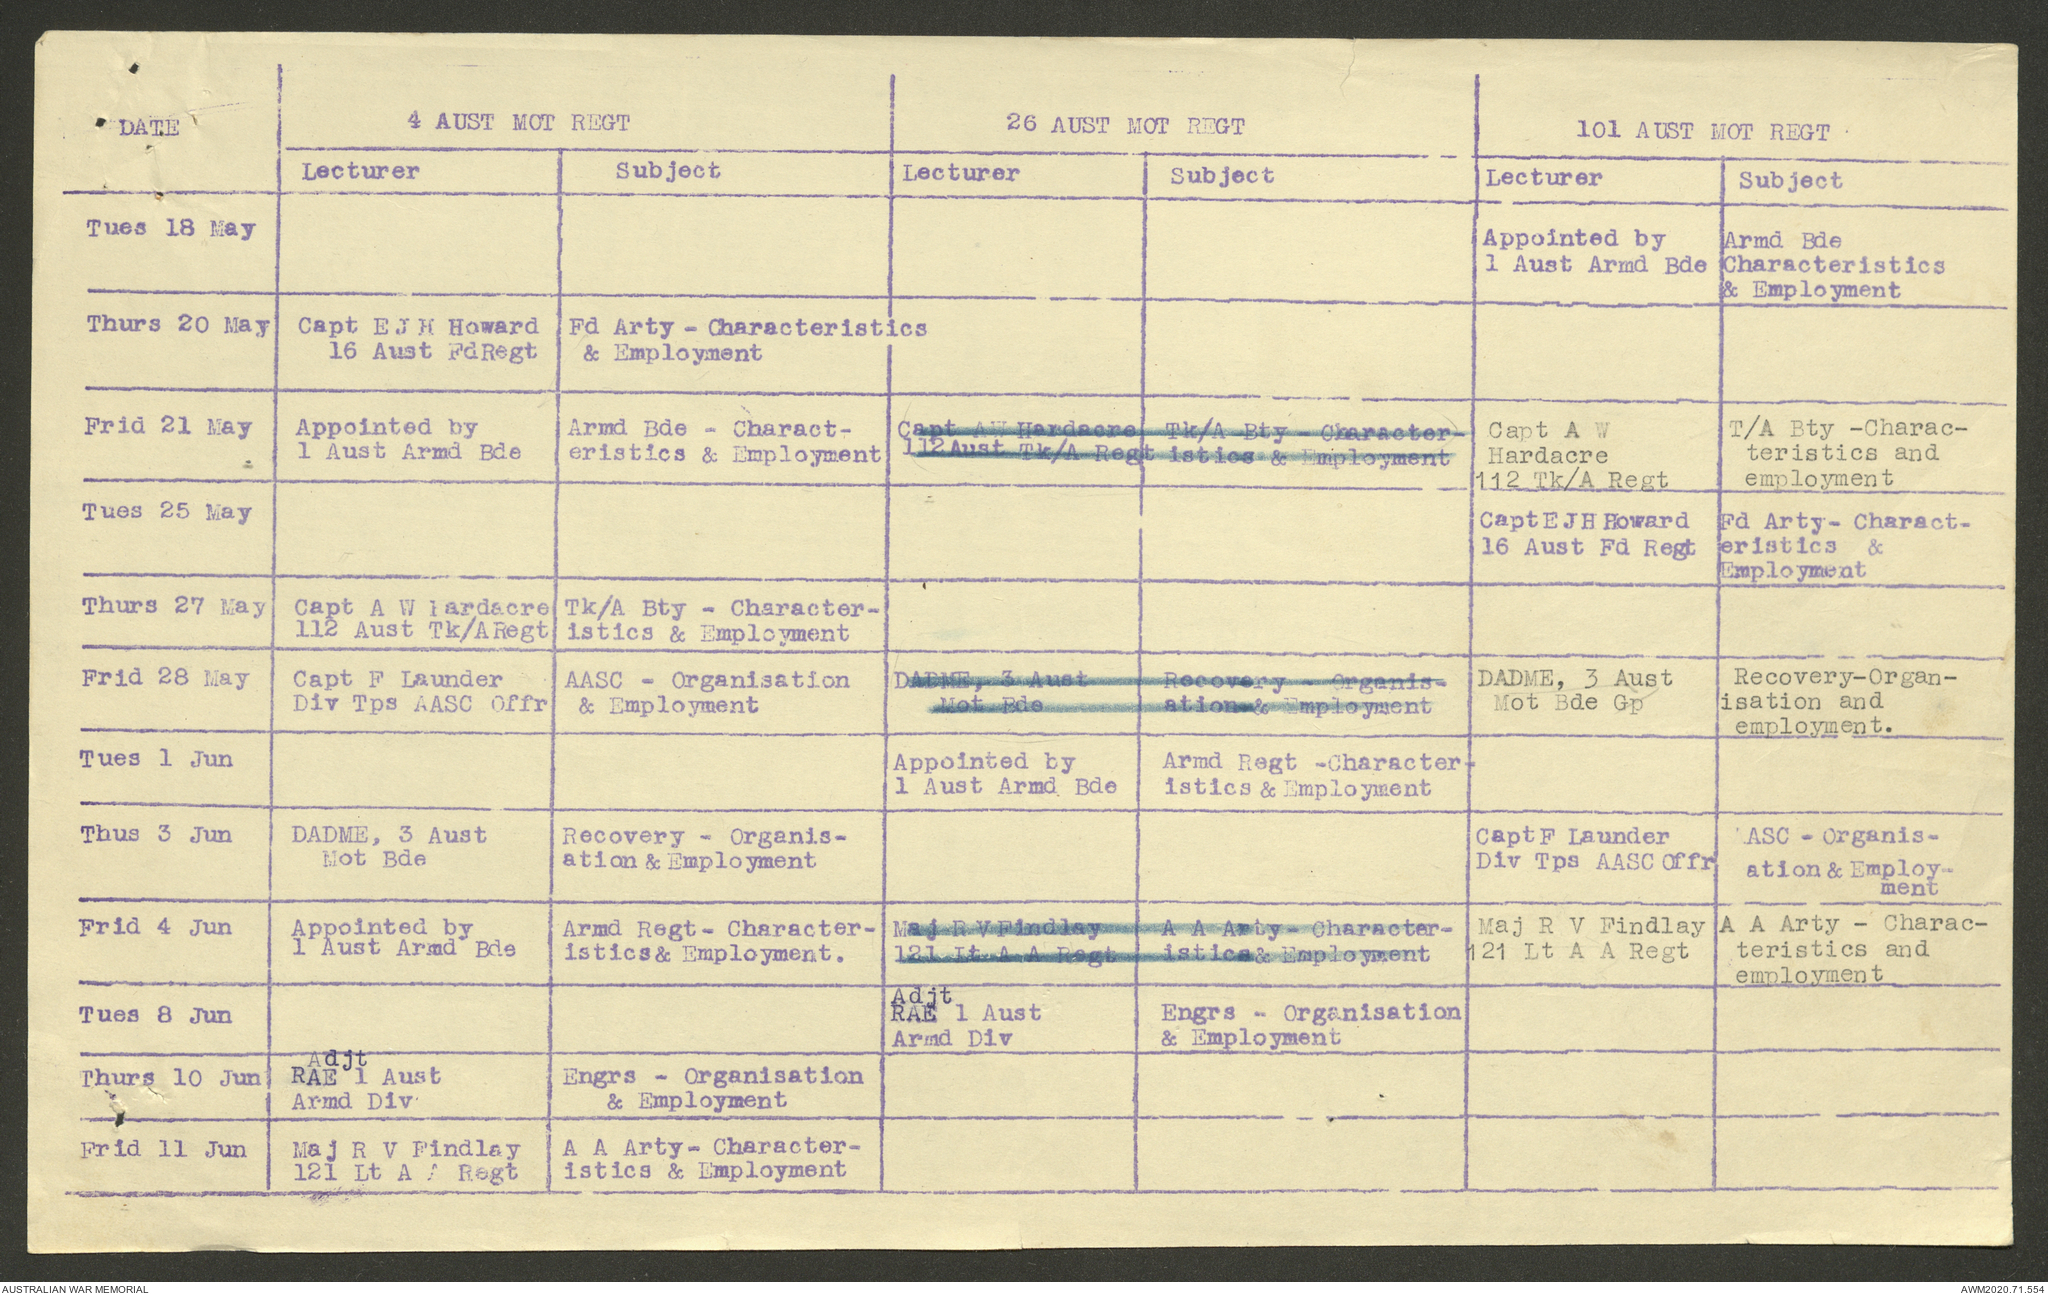 DATE
4 AUST MOT REGT
26 AUST MOT REGT
101 AUST MOT REGT
Lecturer
Subject
Lecturer
Subject
Lecturer
Subject
Tues 18 May
Appointed by
1 Aust Armd Bde
Armd Bde
Characteristics
& Employment
Thurs 20 May
Capt E J H Howard
16 Aust Fd Regt
Fd Arty - Characteristics
& Employment
Frid 21 May
Appointed by
1 Aust Armd Bde
Armd Bde - Charact-
eristics & Employment
Capt A W Hardacre
112 Aust Tk/A Regt
Tk/A Bty - Character-
istics & Employment
Capt A W
Hardacre
112 Tk/A Regt
T/A Bty -Charac-
teristics and
employment
Tues 25 May
Capt E J H Howard
16 Aust Fd Regt
Fd Arty- Charact-
eristics &
Employment
Thurs 27 May
Capt A W Hardacre
112 Aust Tk/A Regt
Tk/A Bty - Character-
istics & Employment
Frid 28 May
Capt F Launder
Div Tps AASC Offr
AASC - Organisation
& Employment
DADME, 3 Aust
Mot Bde
Recovery - Organis-
ation & Employment
DADME, 3 Aust
Mot Bde Gp
Recovery-Organ-
isation and
employment.
Tues 1 Jun
Appointed by
1 Aust Armd Bde
Armd Regt -Character-
istics & Employment
Thus 3 Jun
DADME, 3 Aust
Mot Bde
Recovery - Organis-
ation & Employment
Capt F Launder
Div Tps AASC Offr
ASC - Organis-
ation & Employ-
ment
Frid 4 Jun
Appointed by
1 Aust Armd Bde
Armd Regt- Character-
istics & Employment.
Maj R V Findlay
121 Lt A A Regt
A A Arty- Character-
istics & Employment
Maj R V Findlay
121 Lt A A Regt
A A Arty - Charac-
teristics and
employment
Tues 8 Jun
Adjt
RAE 1 Aust
Armd Div
Engrs - Organisation
& Employment
Thurs 10 Jun
Adjt
RAE 1 Aust
Armd Div
Engrs - Organisation
& Employment
Frid 11 Jun
Maj R V Findlay
121 Lt A A Regt
A A Arty- Character-
istics & Employment
AUSTRALIAN WAR MEMORIAL
AWM2020.71.554